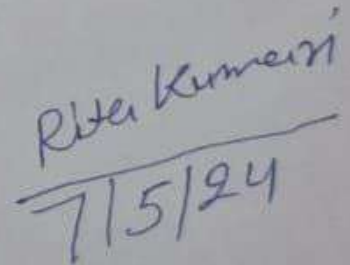 Rita Kumari
7/5/24